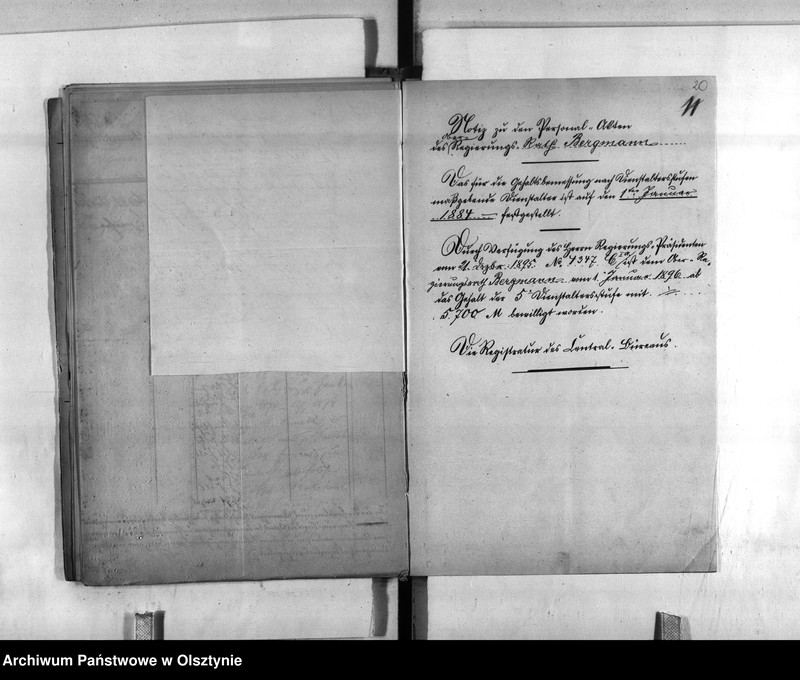 20
11
Notiz zu den Personal-Akten
des Ober Regierungs-Rath Bergmann
Das für die Gehaltsbemessung nach Dienstaltersstufen
maßgebende Dienstalter ist auf den 1ten Januar
1884 festgestellt.
Durch Verfügung des Herrn Regierungs-Präsidenten
vom 21. Dezbr. 1895. No 7347 ist dem Ober-Re-
gierungsrath Bergmann vom 1. Januar 1896 ab
das Gehalt der 5. Dienstaltersstufe mit
5,700 M bewilligt worden.
Die Registratur des Central-Büreaus.
Archiwum Państwowe w Olsztynie